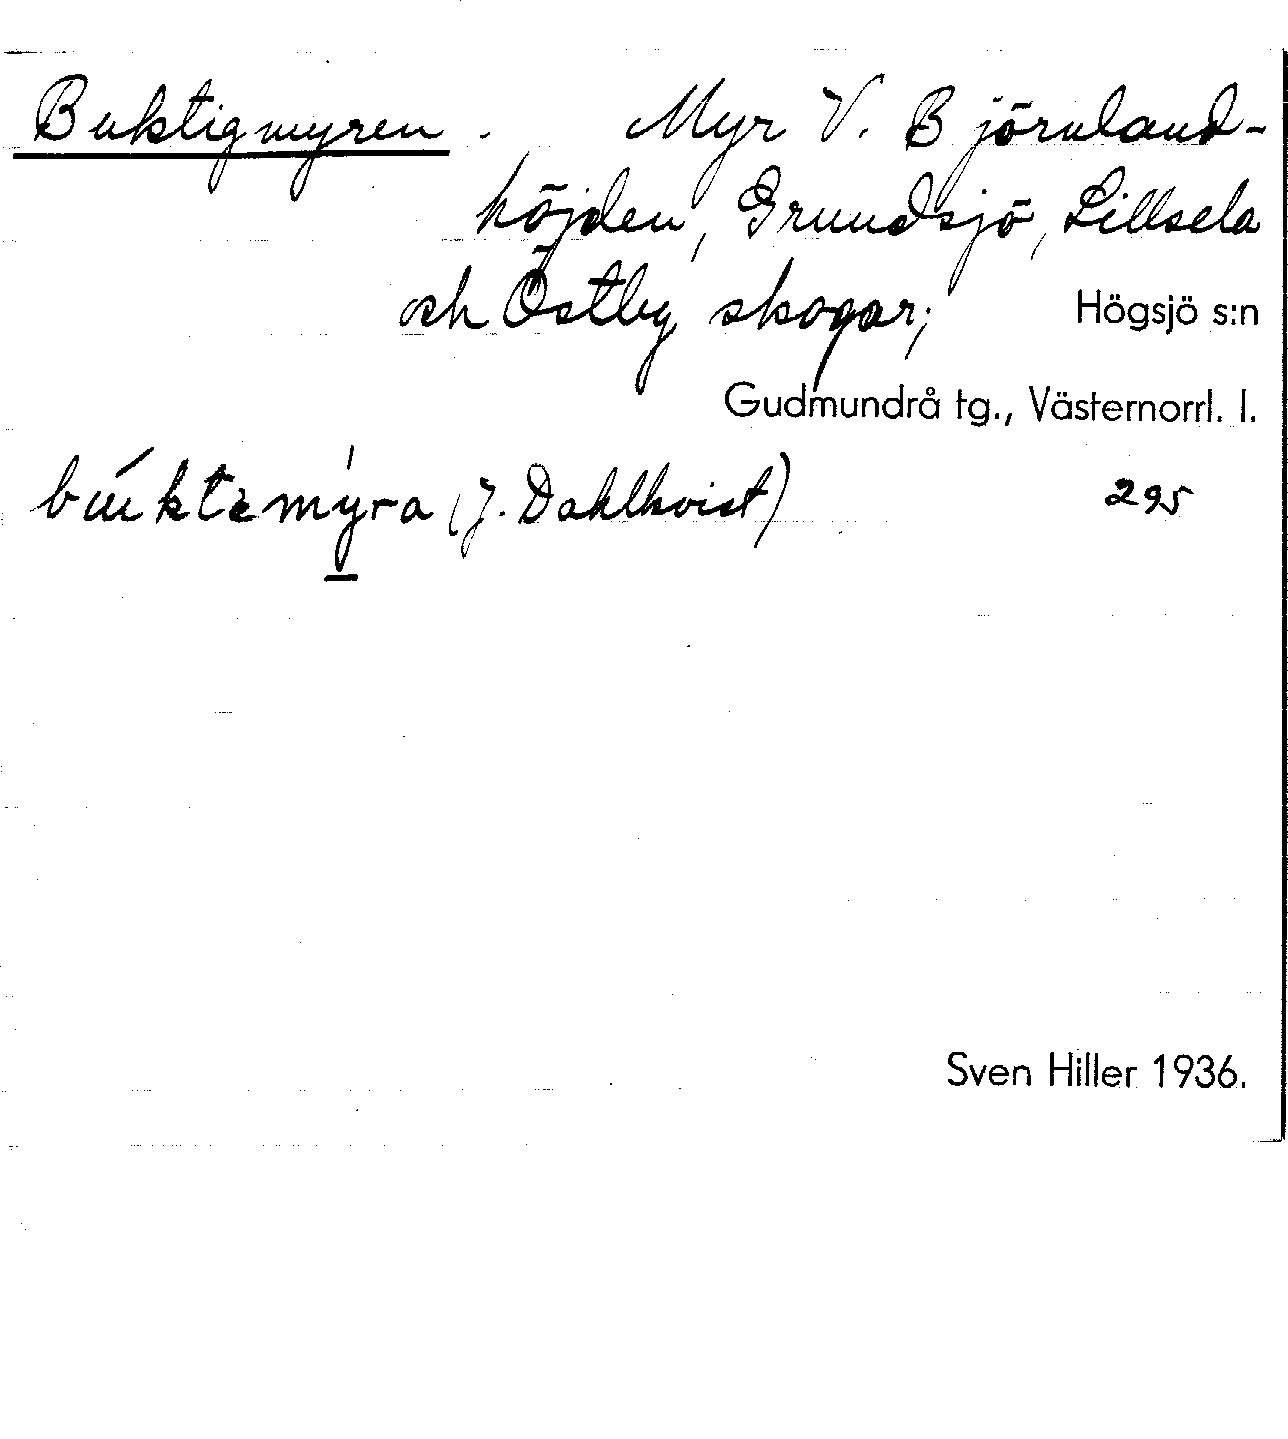 Buktigmyren. Myr V. Björnland-
höjden, Grundsjö, Lillsela
och Östby skogar; Högsjö s:n
Gudmundrå tg., Västernorrl. l.
(J. Dahlkvist) 295
Sven Hiller 1936.